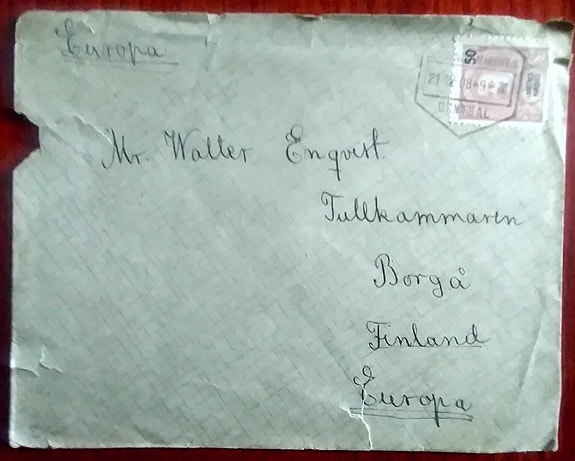 Europa
50
CENTRAL
Mr. Walter Enqvist.
Tullkammaren
Borgå
Finland
Europa